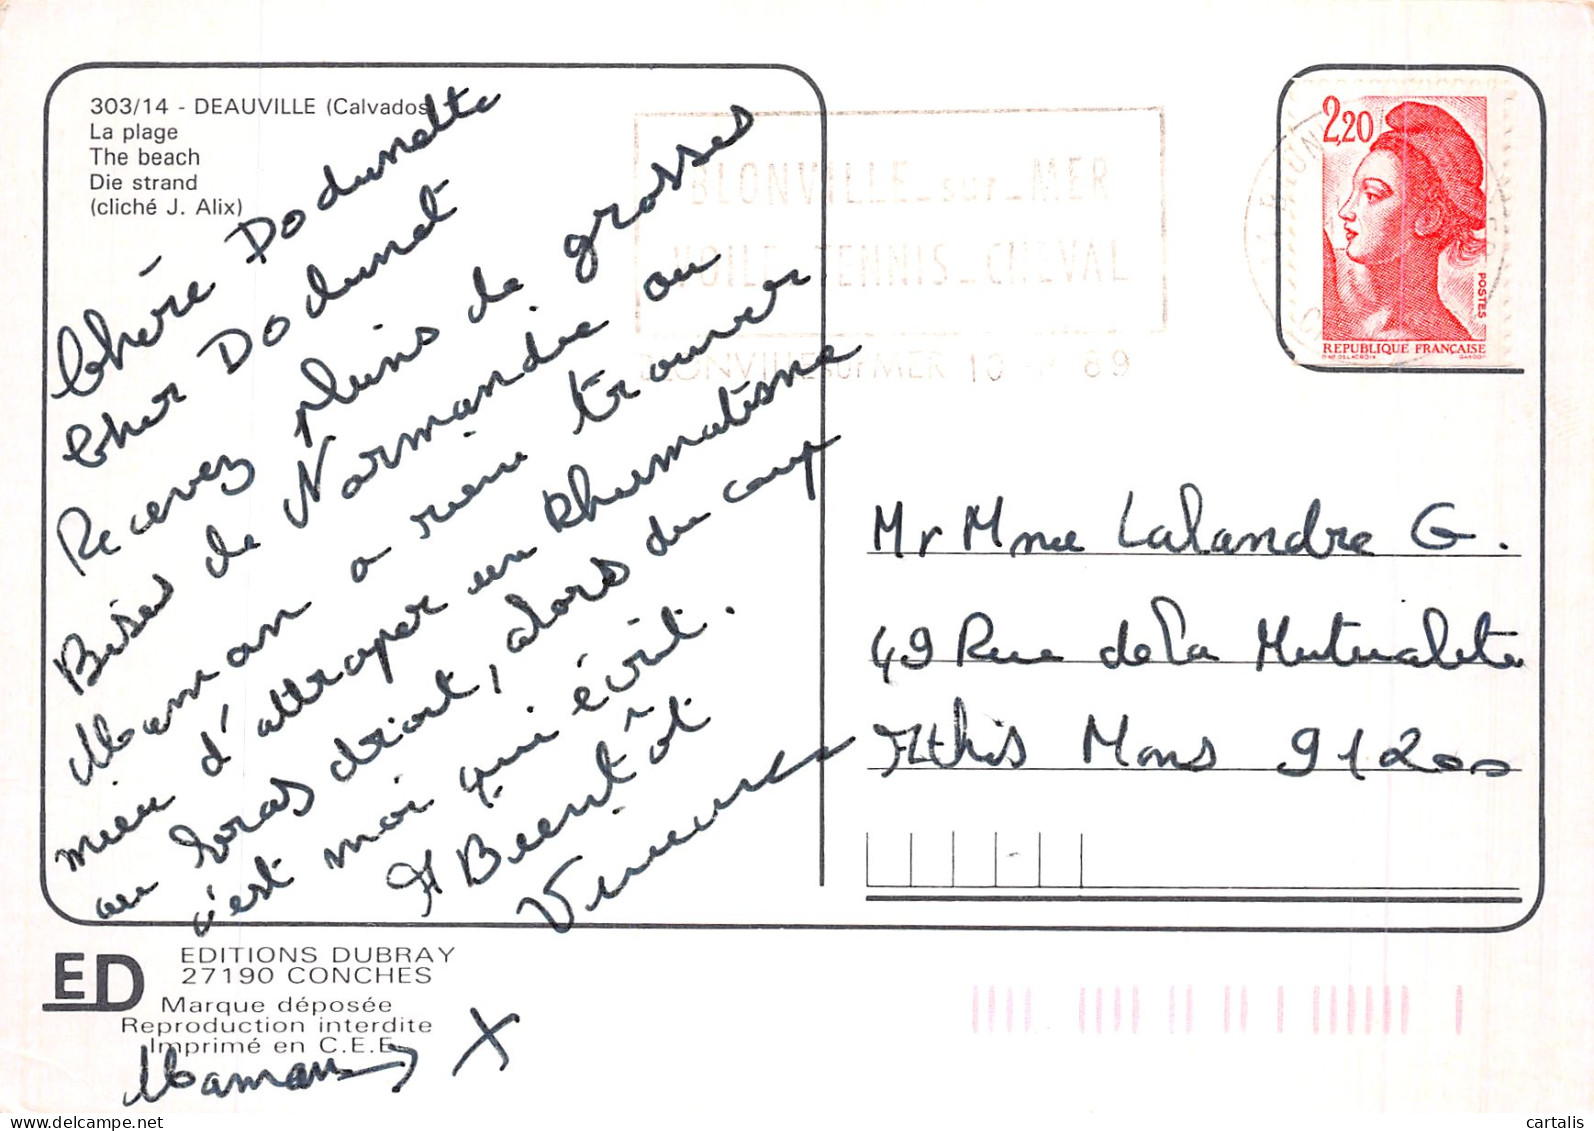 303/14 - DEAUVILLE (Calvados)
La plage
The beach
Die strand
(cliché J. Alix)
Chère Dodunette
Cher Dodunet
Recevez pleins de grosses
Bises de Normandie
Maman a rien trouver
mieu d'attraper un Rhumatisme
au bras droit, alors du coup
c'est moi qui écrit.
A Bientôt
BLONVILLE-sur-MER
VOILE-TENNIS-CHEVAL
BLONVILLE sur MER 10 89
2,20
POSTES
REPUBLIQUE FRANÇAISE
Mr Mme Lalandre G.
49 Rue de la Mutualite
Athis Mons 91200
ED
EDITIONS DUBRAY
27190 CONCHES
Marque déposée
Reproduction interdite
Imprimé en C.E.E.
Maman → X
cartalis